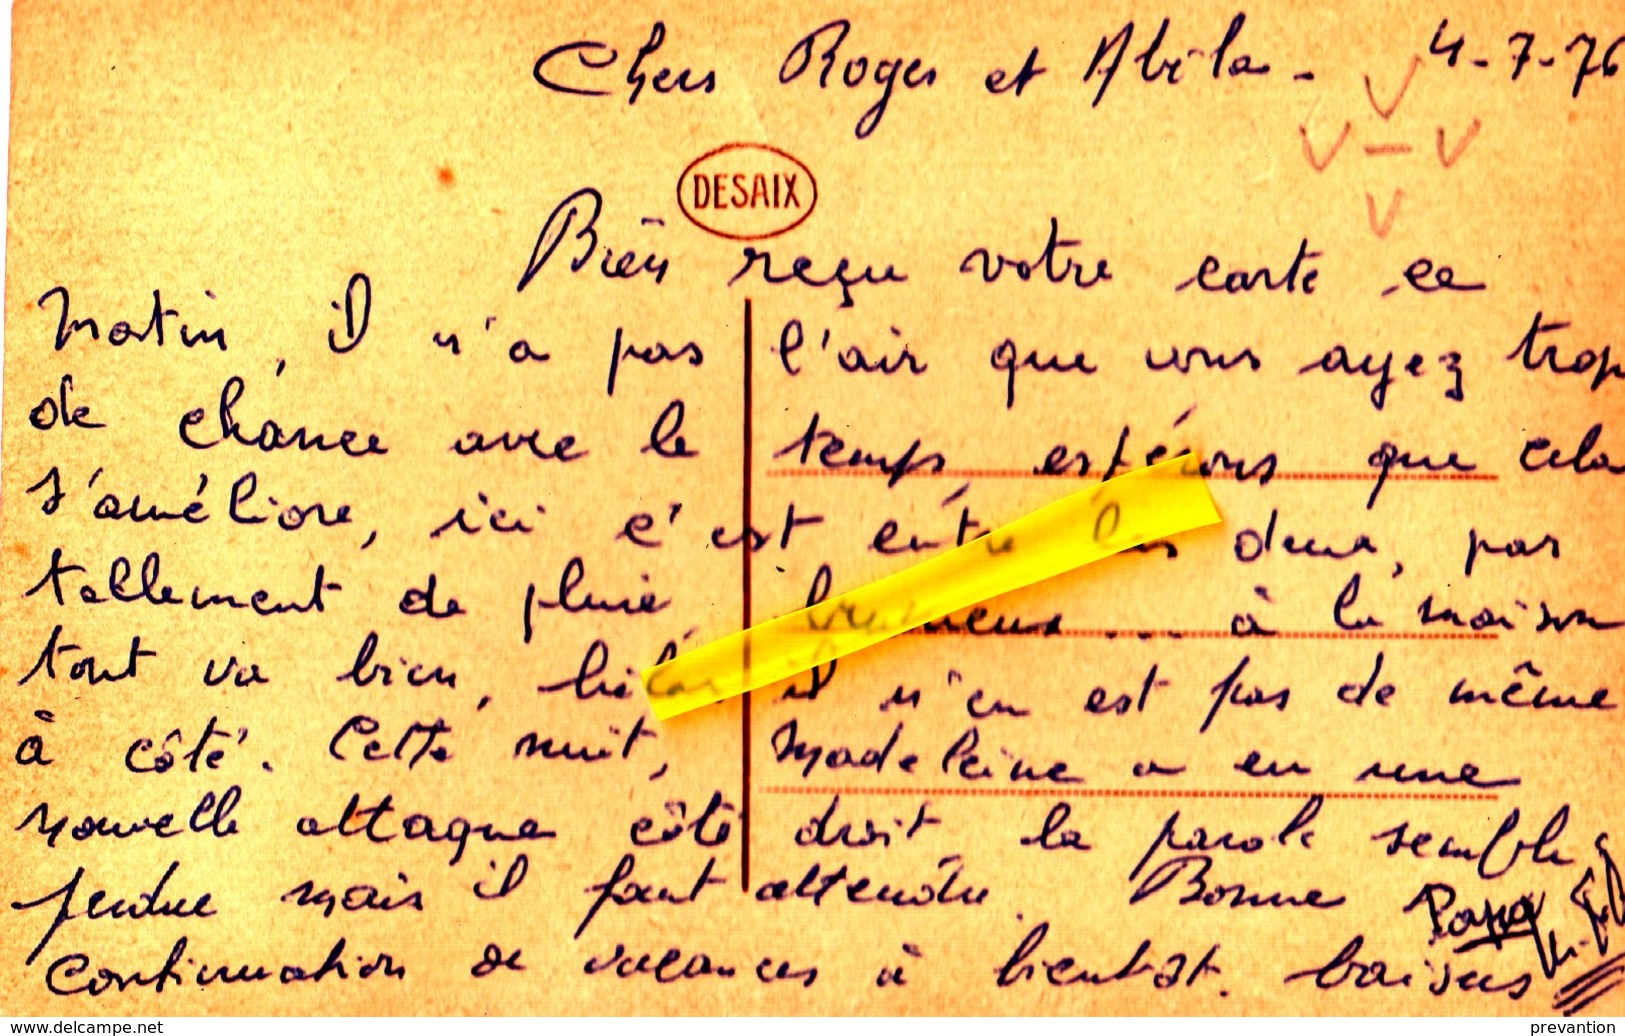 Chers Roger et Abila - 4-7-76
DESAIX
Bien reçu votre carte ce
matin, il n'a pas l'air que vous ayez trop
de chance avec le temps espérons que cela
s'améliore, ici c'est entre les deux, pas
tellement de pluie, brumeux... à la maison
tout va bien, hélas il n'en est pas de même
à côté. Cette nuit, Madeleine a eu une
nouvelle attaque côté droit, la parole semble
perdue mais il faut attendre. Bonne
Papa
continuation de vacances à bientôt. baisers
www.delcampe.net prevantion